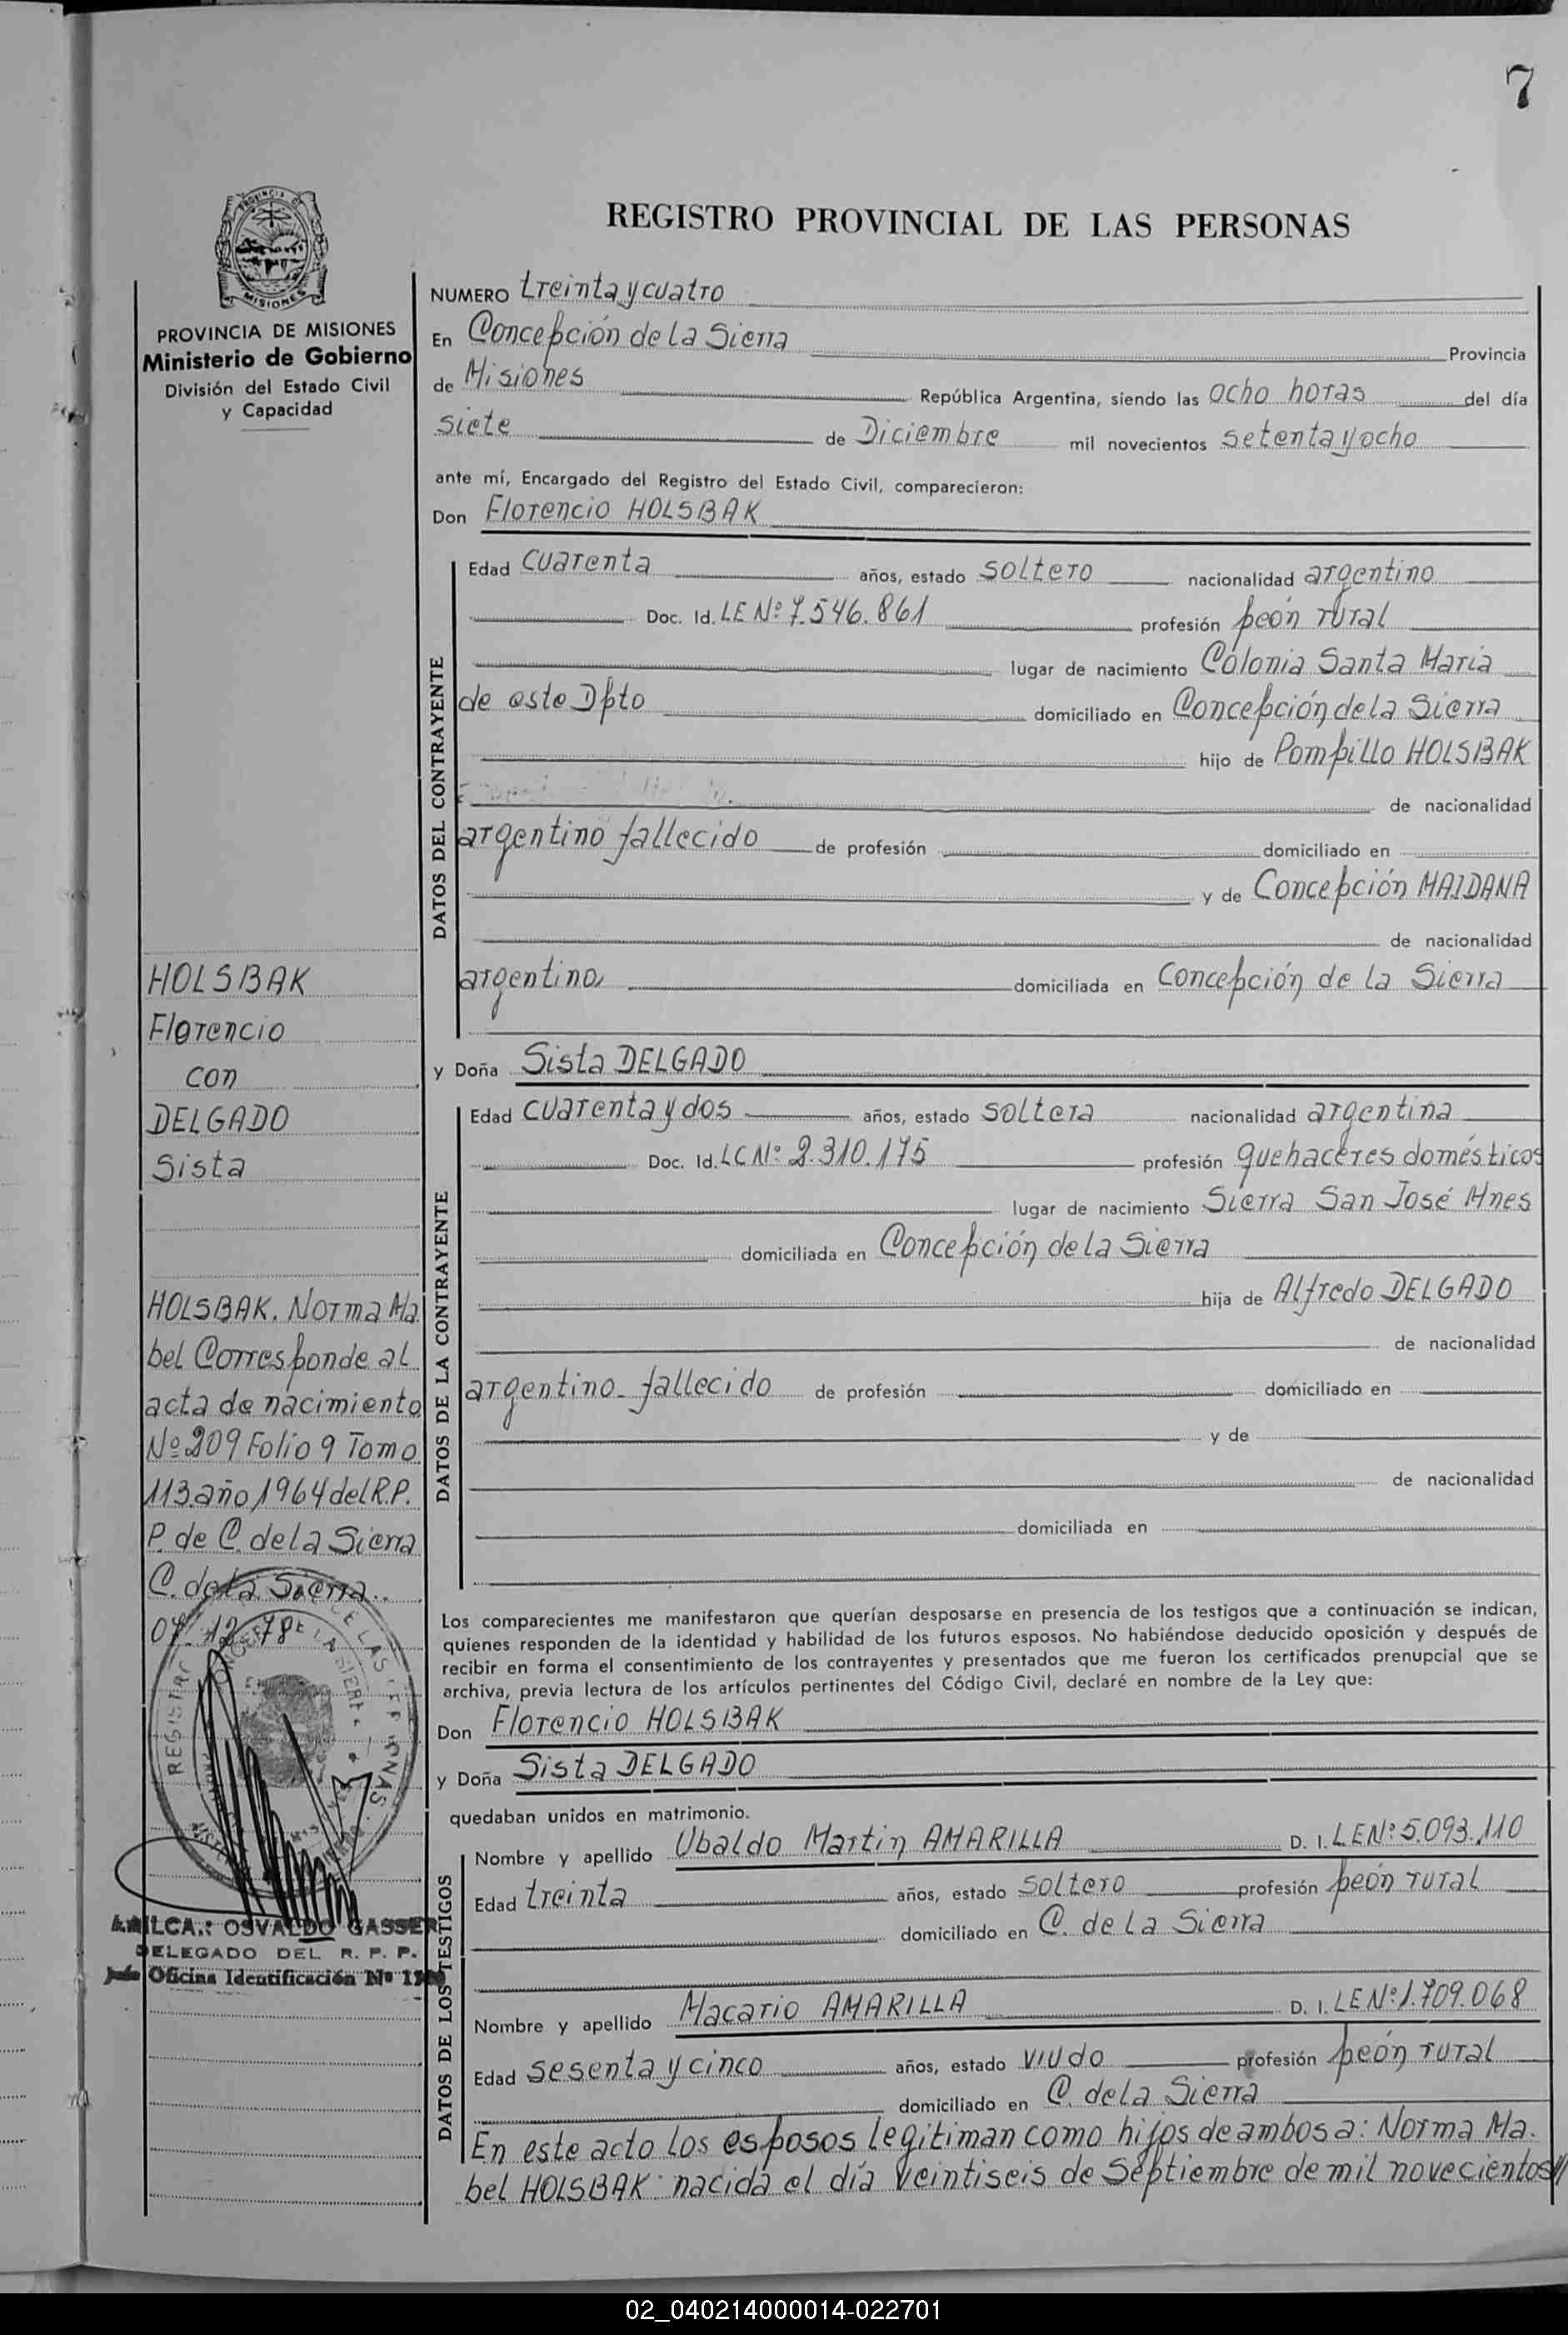 7
PROVINCIA DE
MISIONES
PROVINCIA DE MISIONES
Ministerio de Gobierno
División del Estado Civil
y Capacidad
REGISTRO PROVINCIAL DE LAS PERSONAS
NUMERO treinta y cuatro
En Concepción de la Sierra Provincia
de Misiones República Argentina, siendo las ocho horas del día
siete de Diciembre mil novecientos setenta y ocho
ante mí, Encargado del Registro del Estado Civil, comparecieron:
Don Florencio HOLSBAK
DATOS DEL CONTRAYENTE
Edad cuarenta años, estado soltero nacionalidad argentino
Doc. Id. LE Nº 7.546.861 profesión peón rural
lugar de nacimiento Colonia Santa Maria
de este Dpto domiciliado en Concepción de la Sierra
hijo de Pompillo HOLSBAK
de nacionalidad
argentino fallecido de profesión domiciliado en
y de Concepción MAIDANA
de nacionalidad
argentina domiciliada en Concepción de la Sierra
y Doña Sista DELGADO
DATOS DE LA CONTRAYENTE
Edad cuarenta y dos años, estado soltera nacionalidad argentina
Doc. Id. LC Nº 2.310.175 profesión quehaceres domésticos
lugar de nacimiento Sierra San José Mnes
domiciliada en Concepción de la Sierra
hija de Alfredo DELGADO
de nacionalidad
argentino fallecido de profesión domiciliado en
y de
de nacionalidad
domiciliada en
Los comparecientes me manifestaron que querían desposarse en presencia de los testigos que a continuación se indican,
quienes responden de la identidad y habilidad de los futuros esposos. No habiéndose deducido oposición y después de
recibir en forma el consentimiento de los contrayentes y presentados que me fueron los certificados prenupcial que se
archiva, previa lectura de los artículos pertinentes del Código Civil, declaré en nombre de la Ley que:
Don Florencio HOLSBAK
y Doña Sista DELGADO
quedaban unidos en matrimonio.
DATOS DE LOS TESTIGOS
Nombre y apellido Ubaldo Martin AMARILLA D. I. LE Nº 5.093.110
Edad treinta años, estado soltero profesión peón rural
domiciliado en C. de la Sierra
Nombre y apellido Macario AMARILLA D. I. LE Nº 1.709.068
Edad sesenta y cinco años, estado viudo profesión peón rural
domiciliado en C. de la Sierra
En este acto los esposos legitiman como hijos de ambos a: Norma Ma.
bel HOLSBAK: nacida el día veintiseis de Septiembre de mil novecientos//
HOLSBAK
Florencio
con
DELGADO
Sista
HOLSBAK. Norma Ma
bel Corresponde al
acta de nacimiento
Nº 209 Folio 9 Tomo
113 año 1964 del R.P.
P. de C. de la Sierra
C. de la Sierra..
07.12.78
OSVALDO GASSER
DELEGADO DEL R. P. P.
Oficina Identificación Nº
02_040214000014-022701